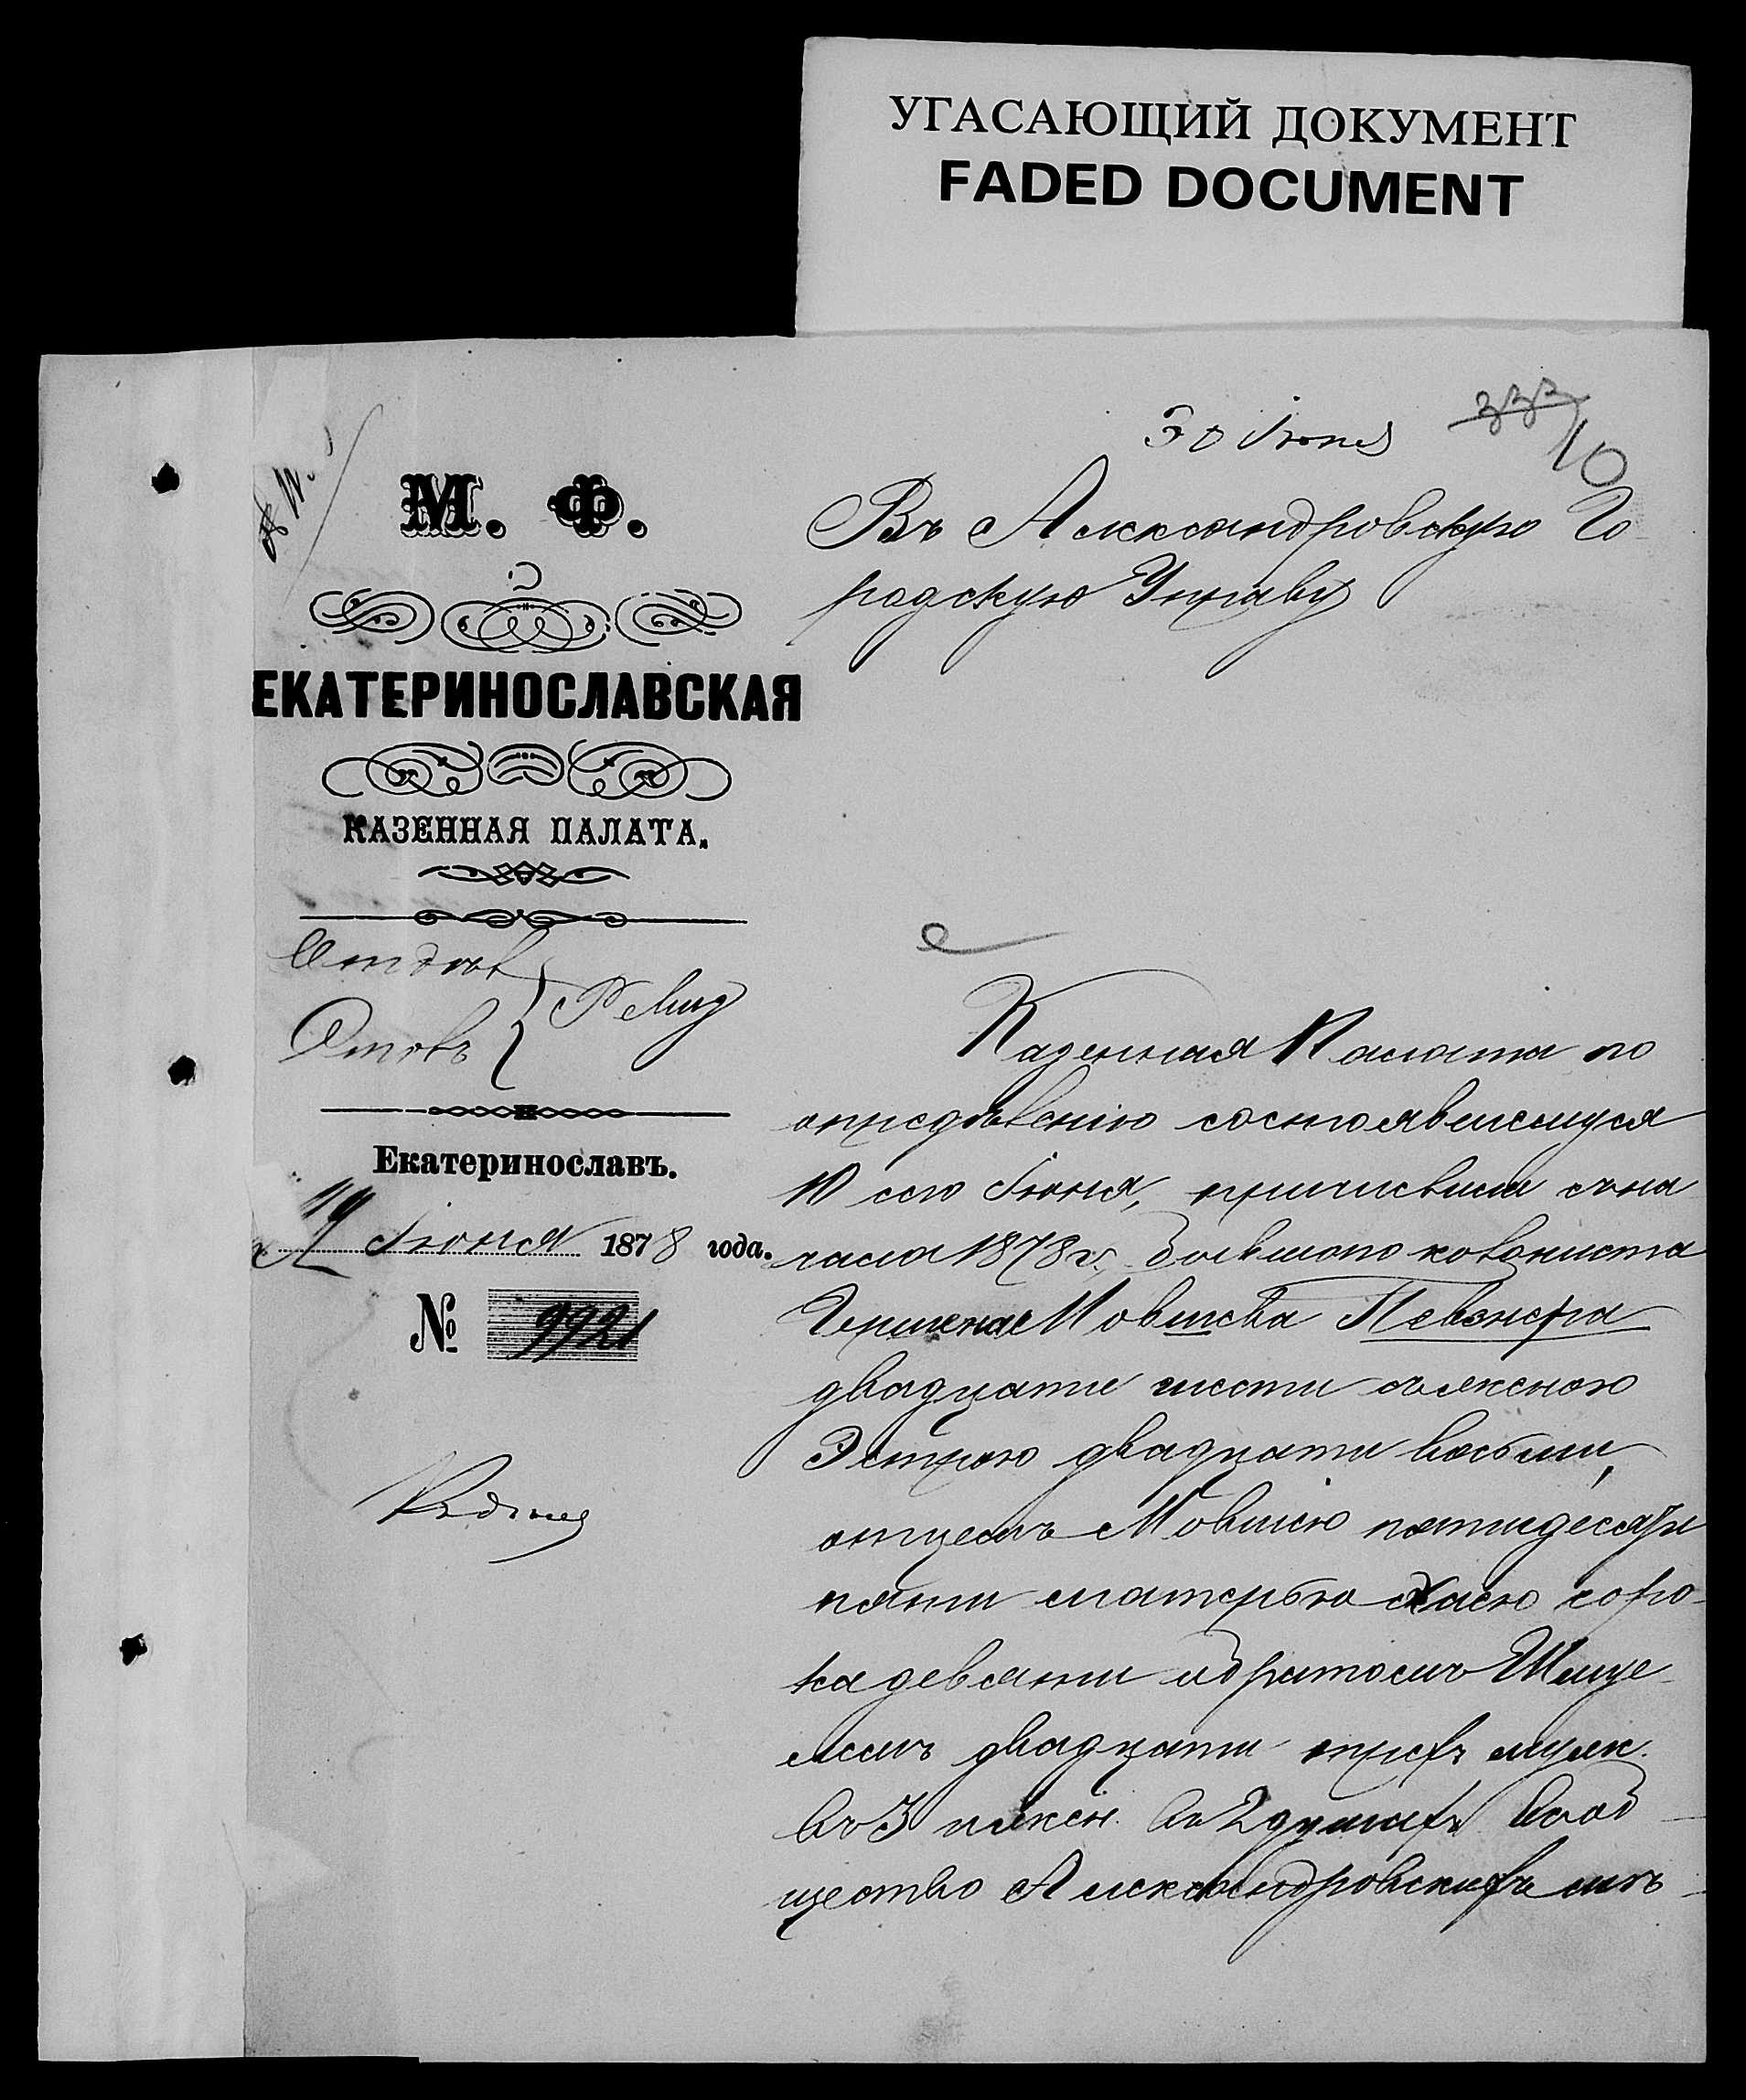 УГАСАЮЩИЙ ДОКУМЕНТ
FADED DOCUMENT
30 Іюня
333
10
М. Ф.
ЕКАТЕРИНОСЛАВСКАЯ
КАЗЕННАЯ ПАЛАТА.
Отдѣл
Ревиз
Екатеринославъ.
19 Іюня 1878 года.
№ 9921
Въ Александровскую Го
родскую Управу
Казенная Палата по
опредѣленію состоявшемуся
10 сего Іюня, причисвила съ на
чала 1878 г., бывшаго колониста
Гершена Мовшева Певзнера
двадцати шести съ женою
Эстрою двадцати восьми,
отцемъ Мовшею пятидесяти
пяти матерью Хаею соро-
ка девяти и братомъ Шмуе-
лемъ двадцати трехъ муж.
въ 3 и жен. въ 2 душахъ въ об-
щество Александровскихъ мѣ-